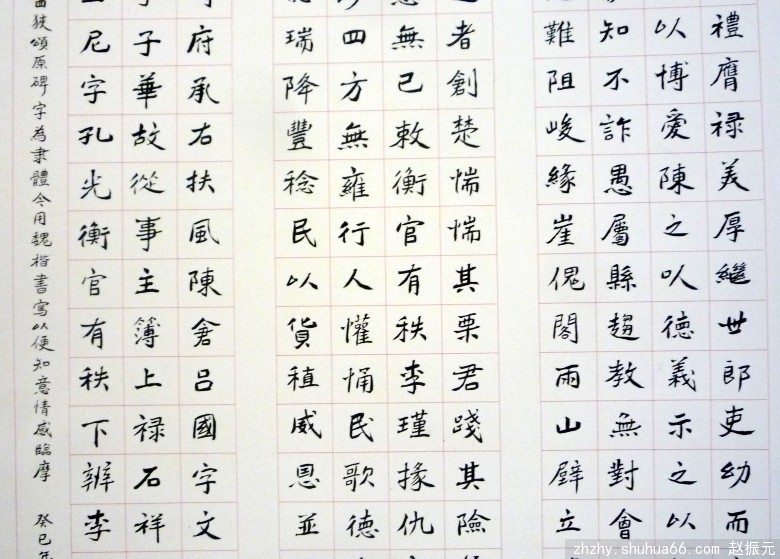 禮膺祿美厚繼世郎吏幼而
以博愛陳之以德義示之以
知不詐愚屬縣趨教無對會
難阻峻緣崖傀閣兩山壁立
者創楚惴惴其栗君踐其險
無已敕衡官有秩李瑾掾仇
四方無雍行人懽悀民歌德
瑞降豐稔民以貨稙威恩並
府承右扶風陳倉呂國字文
子華故從事主簿上祿石祥
尼字孔光衡官有秩下辨李
狹頌原碑字為隶體今用魏楷書寫以便知意情感臨摩
癸巳年
zhzhy.shuhua66.com 赵振元